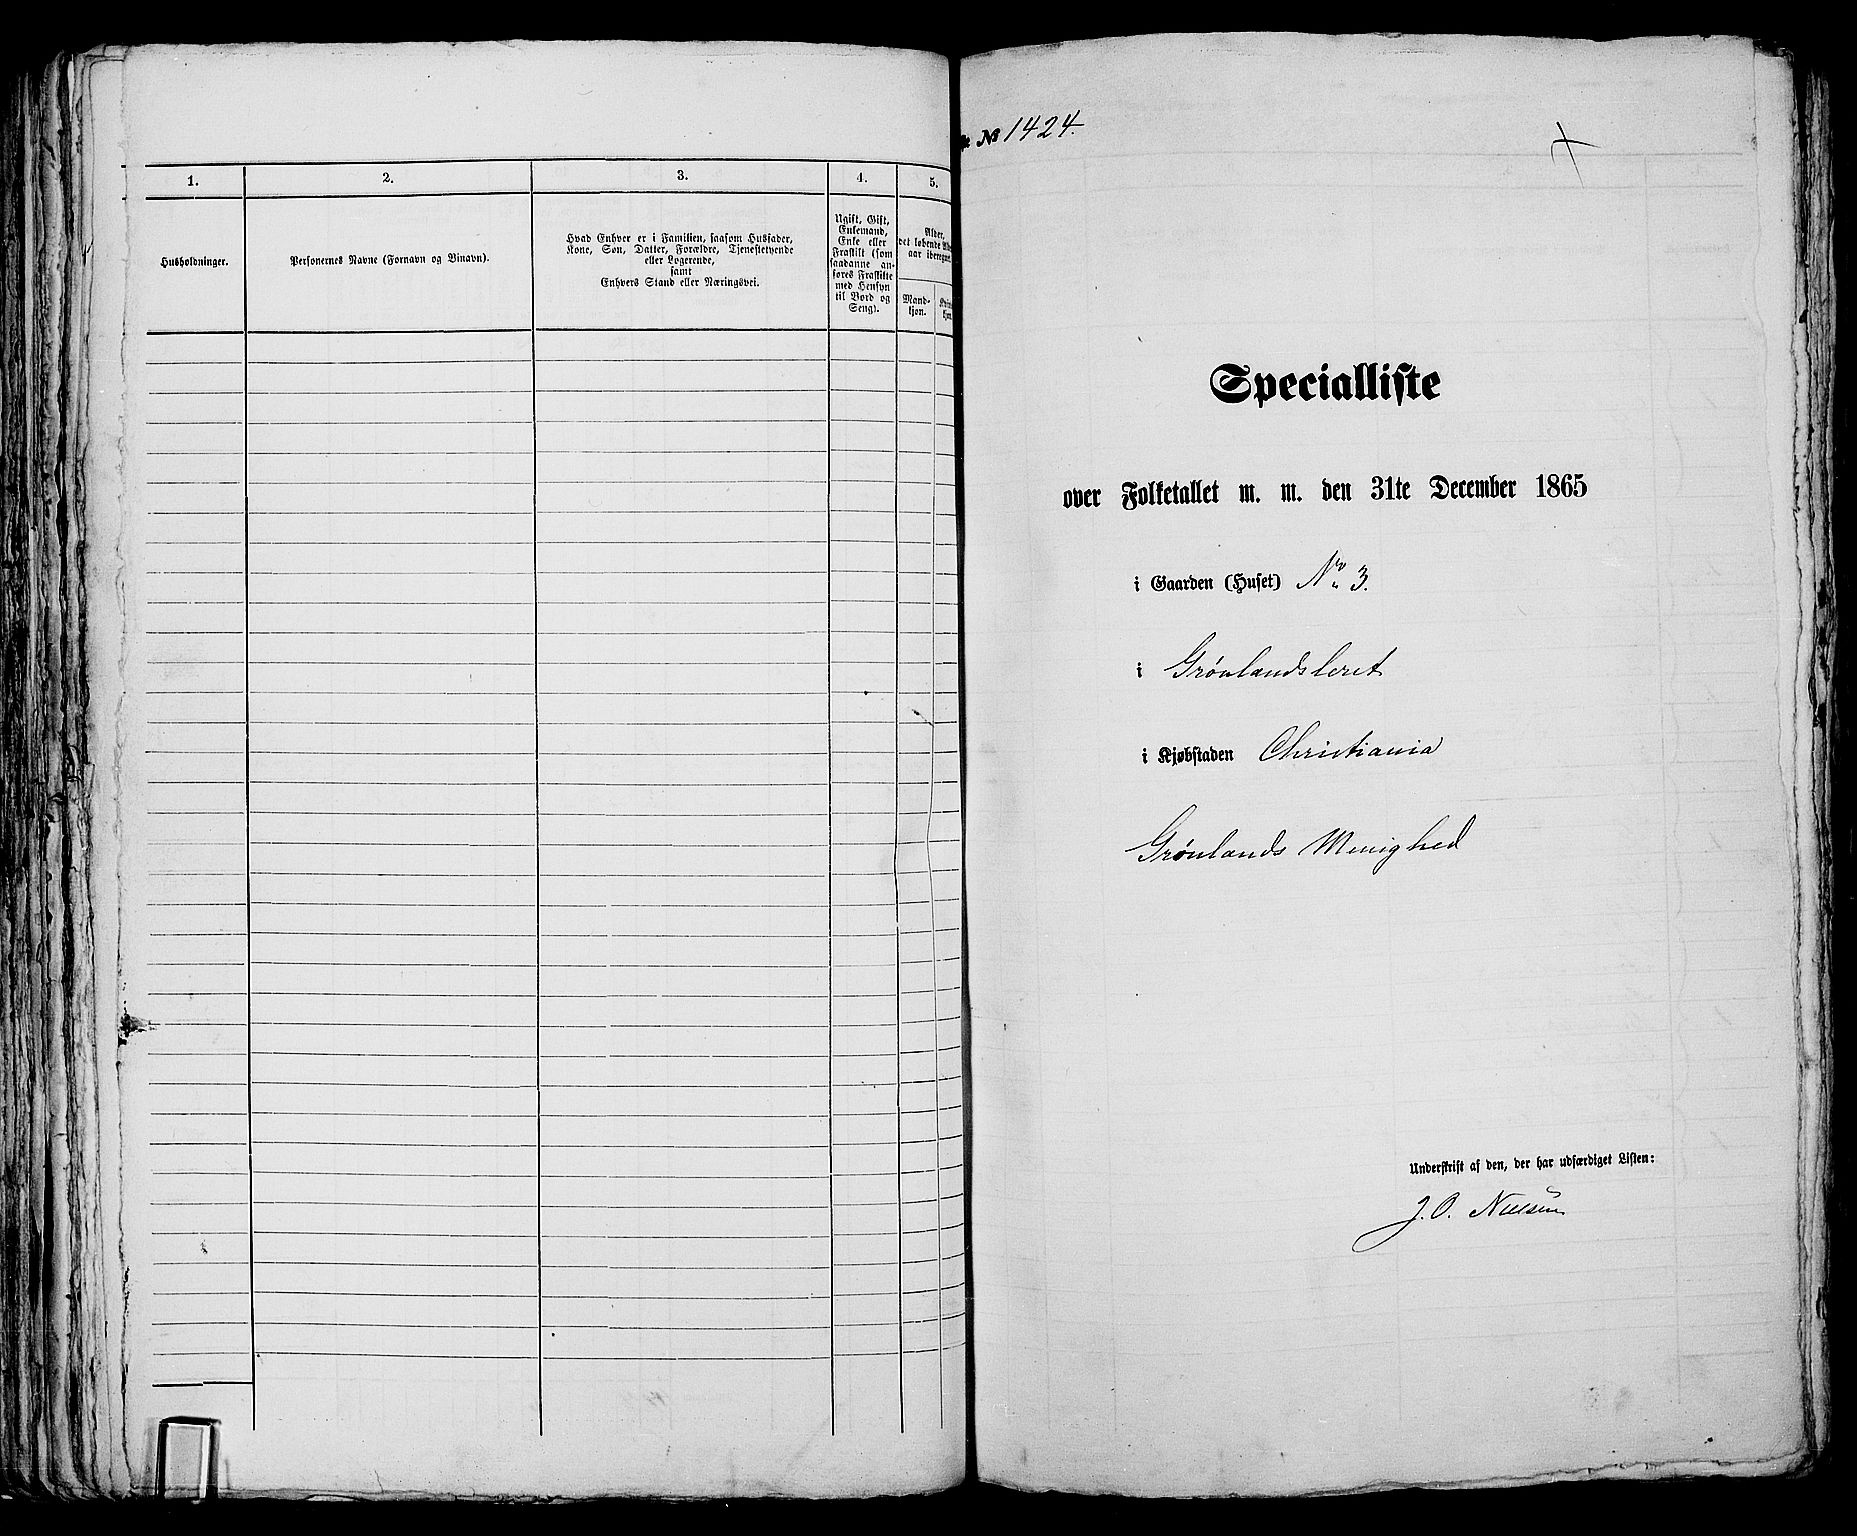 1.
2.
3.
4.
5.
Husholdninger.
Personernes Navne (Fornavn og Binavn).
Hvad Enhver er i Familien, saasom Husfader,
Kone, Søn, Datter, Forældre, Tjenestetyende
eller Logerende,
samt
Enhvers Stand eller Næringsvei.
Ugift, Gift,
Enkemand,
Enke eller
Fraskilt (som
saadanne an-
føres Fraskilte
med Hensyn
til Bord og
Seng).
Alder,
det løbende
aar iberegnet.
Mand-
kjøn.
№ 1424.
Specialliste
over Folketallet m. m. den 31te December 1865
i Gaarden (Huset) No 3.
i Grønlandsleret
i Kjøbstaden Christiania
Grønlands Menighed
Underskrift af den, der har udfærdiget Listen:
J. O. Nielsen